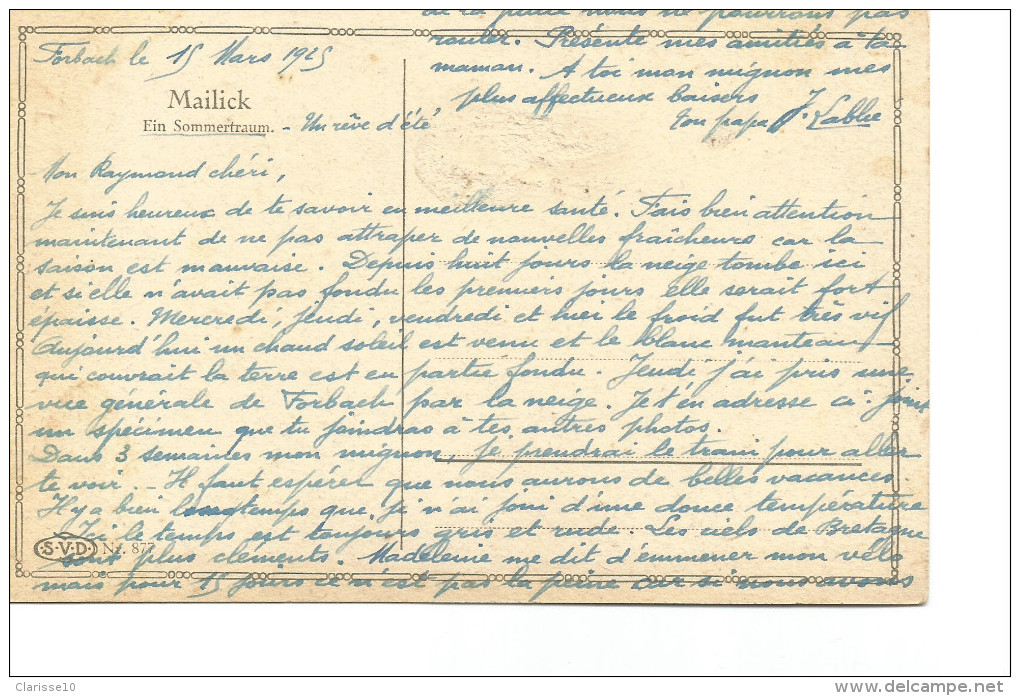 Forbach le 15 Mars 1925
Mailick
Ein Sommertraum. - Un rêve d'été
Mon Raymond chéri,
Je suis heureux de te savoir en meilleure santé. Fais bien attention
maintenant de ne pas attraper de nouvelles fraîcheurs car la
saison est mauvaise. Depuis huit jours la neige tombe ici
et si elle n'avait pas fondu les premiers jours elle serait fort
épaisse. Mercredi, jeudi, vendredi et hier le froid fut très vif
Aujourd'hui un chaud soleil est venu et le blanc manteau
qui couvrait la terre est en partie fondu. Jeudi j'ai pris une
vue générale de Forbach par la neige. Je t'en adresse ci-joint
un specimen que tu joindras à tes autres photos.
Dans 3 semaines mon mignon, je prendrai le train pour aller
te voir. - Il faut espérer que nous aurons de belles vacances
Il y a bien longtemps que je n'ai joui d'une douce température
Ici le temps est toujours gris et rude. Les ciels de Bretagne
sont plus cléments. Madeleine me dit d'emmener mon vélo
mais pour 15 jours ce n'est pas la peine car si nous avons
de la pluie nous ne pourrons pas
rouler. Présente mes amitiés à ta
maman. A toi mon mignon mes
plus affectueux baisers
ton papa J. Labbe
S.V.D. Nr. 877
Clarisse10
delcampe.net